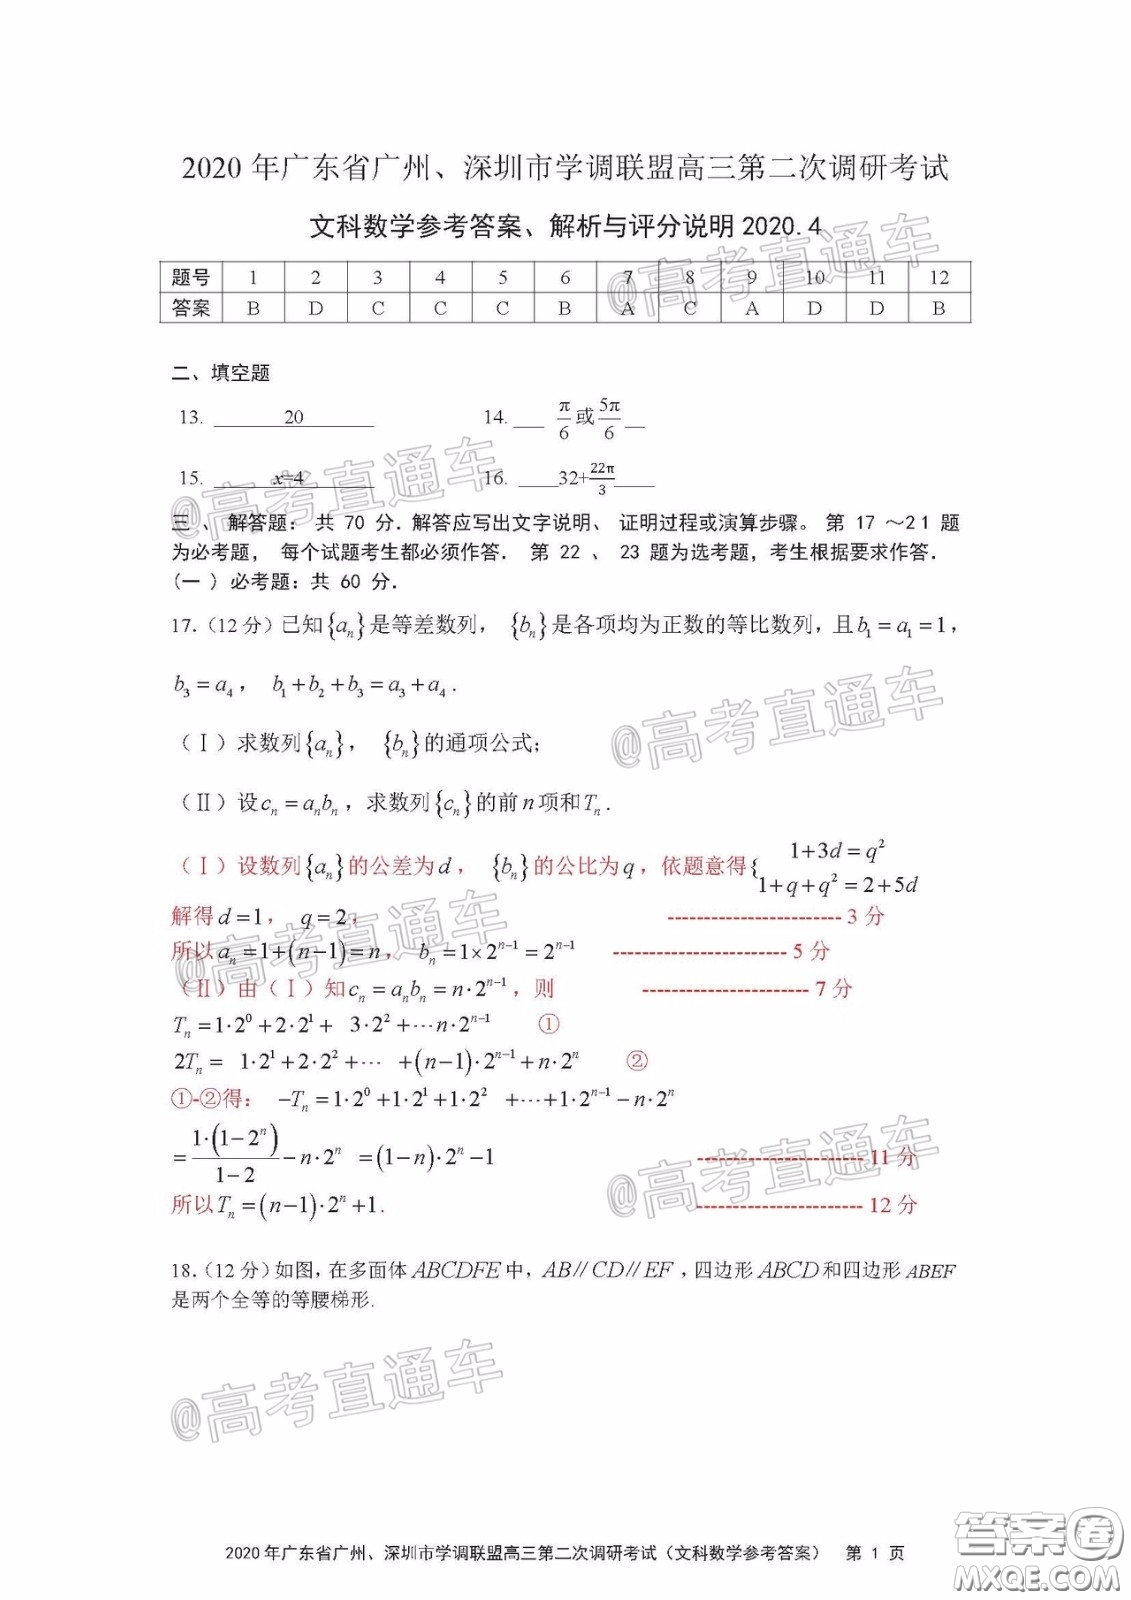 2020 年广东省广州、深圳市学调联盟高三第二次调研考试
文科数学参考答案、解析与评分说明 2020.4
题号 1 2 3 4 5 6 7 8 9 10 11 12
答案 B D C C C B A C A D D B
二、填空题
13. 20 14. π/6 或 5π/6
15. x=4 16. 32+22π/3
三 、 解答题： 共 70 分．解答应写出文字说明、 证明过程或演算步骤。 第 17 ～21 题
为必考题， 每个试题考生都必须作答． 第 22 、 23 题为选考题，考生根据要求作答．
(一 ) 必考题：共 60 分．
17.（12 分）已知{aₙ}是等差数列， {bₙ}是各项均为正数的等比数列，且b₁ = a₁ = 1，
b₃ = a₄， b₁ + b₂ + b₃ = a₃ + a₄ .
（Ⅰ）求数列{aₙ}， {bₙ}的通项公式；
（Ⅱ）设cₙ = aₙbₙ，求数列{cₙ}的前n项和Tₙ .
（Ⅰ）设数列{aₙ}的公差为d， {bₙ}的公比为q，依题意得{ 1+3d = q²
1+q+q² = 2+5d
解得d = 1， q = 2， ------------------------ 3 分
所以aₙ = 1+(n−1) = n， bₙ = 1×2ⁿ⁻¹ = 2ⁿ⁻¹ ------------------------ 5 分
（Ⅱ）由（Ⅰ）知cₙ = aₙbₙ = n·2ⁿ⁻¹，则 ----------------------- 7 分
Tₙ = 1·2⁰ + 2·2¹ + 3·2² + ⋯n·2ⁿ⁻¹ ①
2Tₙ = 1·2¹ + 2·2² + ⋯ + (n−1)·2ⁿ⁻¹ + n·2ⁿ ②
①-②得： −Tₙ = 1·2⁰ + 1·2¹ + 1·2² + ⋯ + 1·2ⁿ⁻¹ − n·2ⁿ
= 1·(1−2ⁿ)/(1−2) − n·2ⁿ = (1−n)·2ⁿ − 1 ----------------------- 11 分
所以Tₙ = (n−1)·2ⁿ + 1. ----------------------- 12 分
18.（12 分）如图，在多面体 ABCDFE 中，AB // CD // EF，四边形 ABCD 和四边形 ABEF
是两个全等的等腰梯形.
2020 年广东省广州、深圳市学调联盟高三第二次调研考试（文科数学参考答案） 第 1 页
@高考直通车
@高考直通车
@高考直通车
@高考直通车
@高考直通车
@高考直通车
答案卷
MXQE.COM